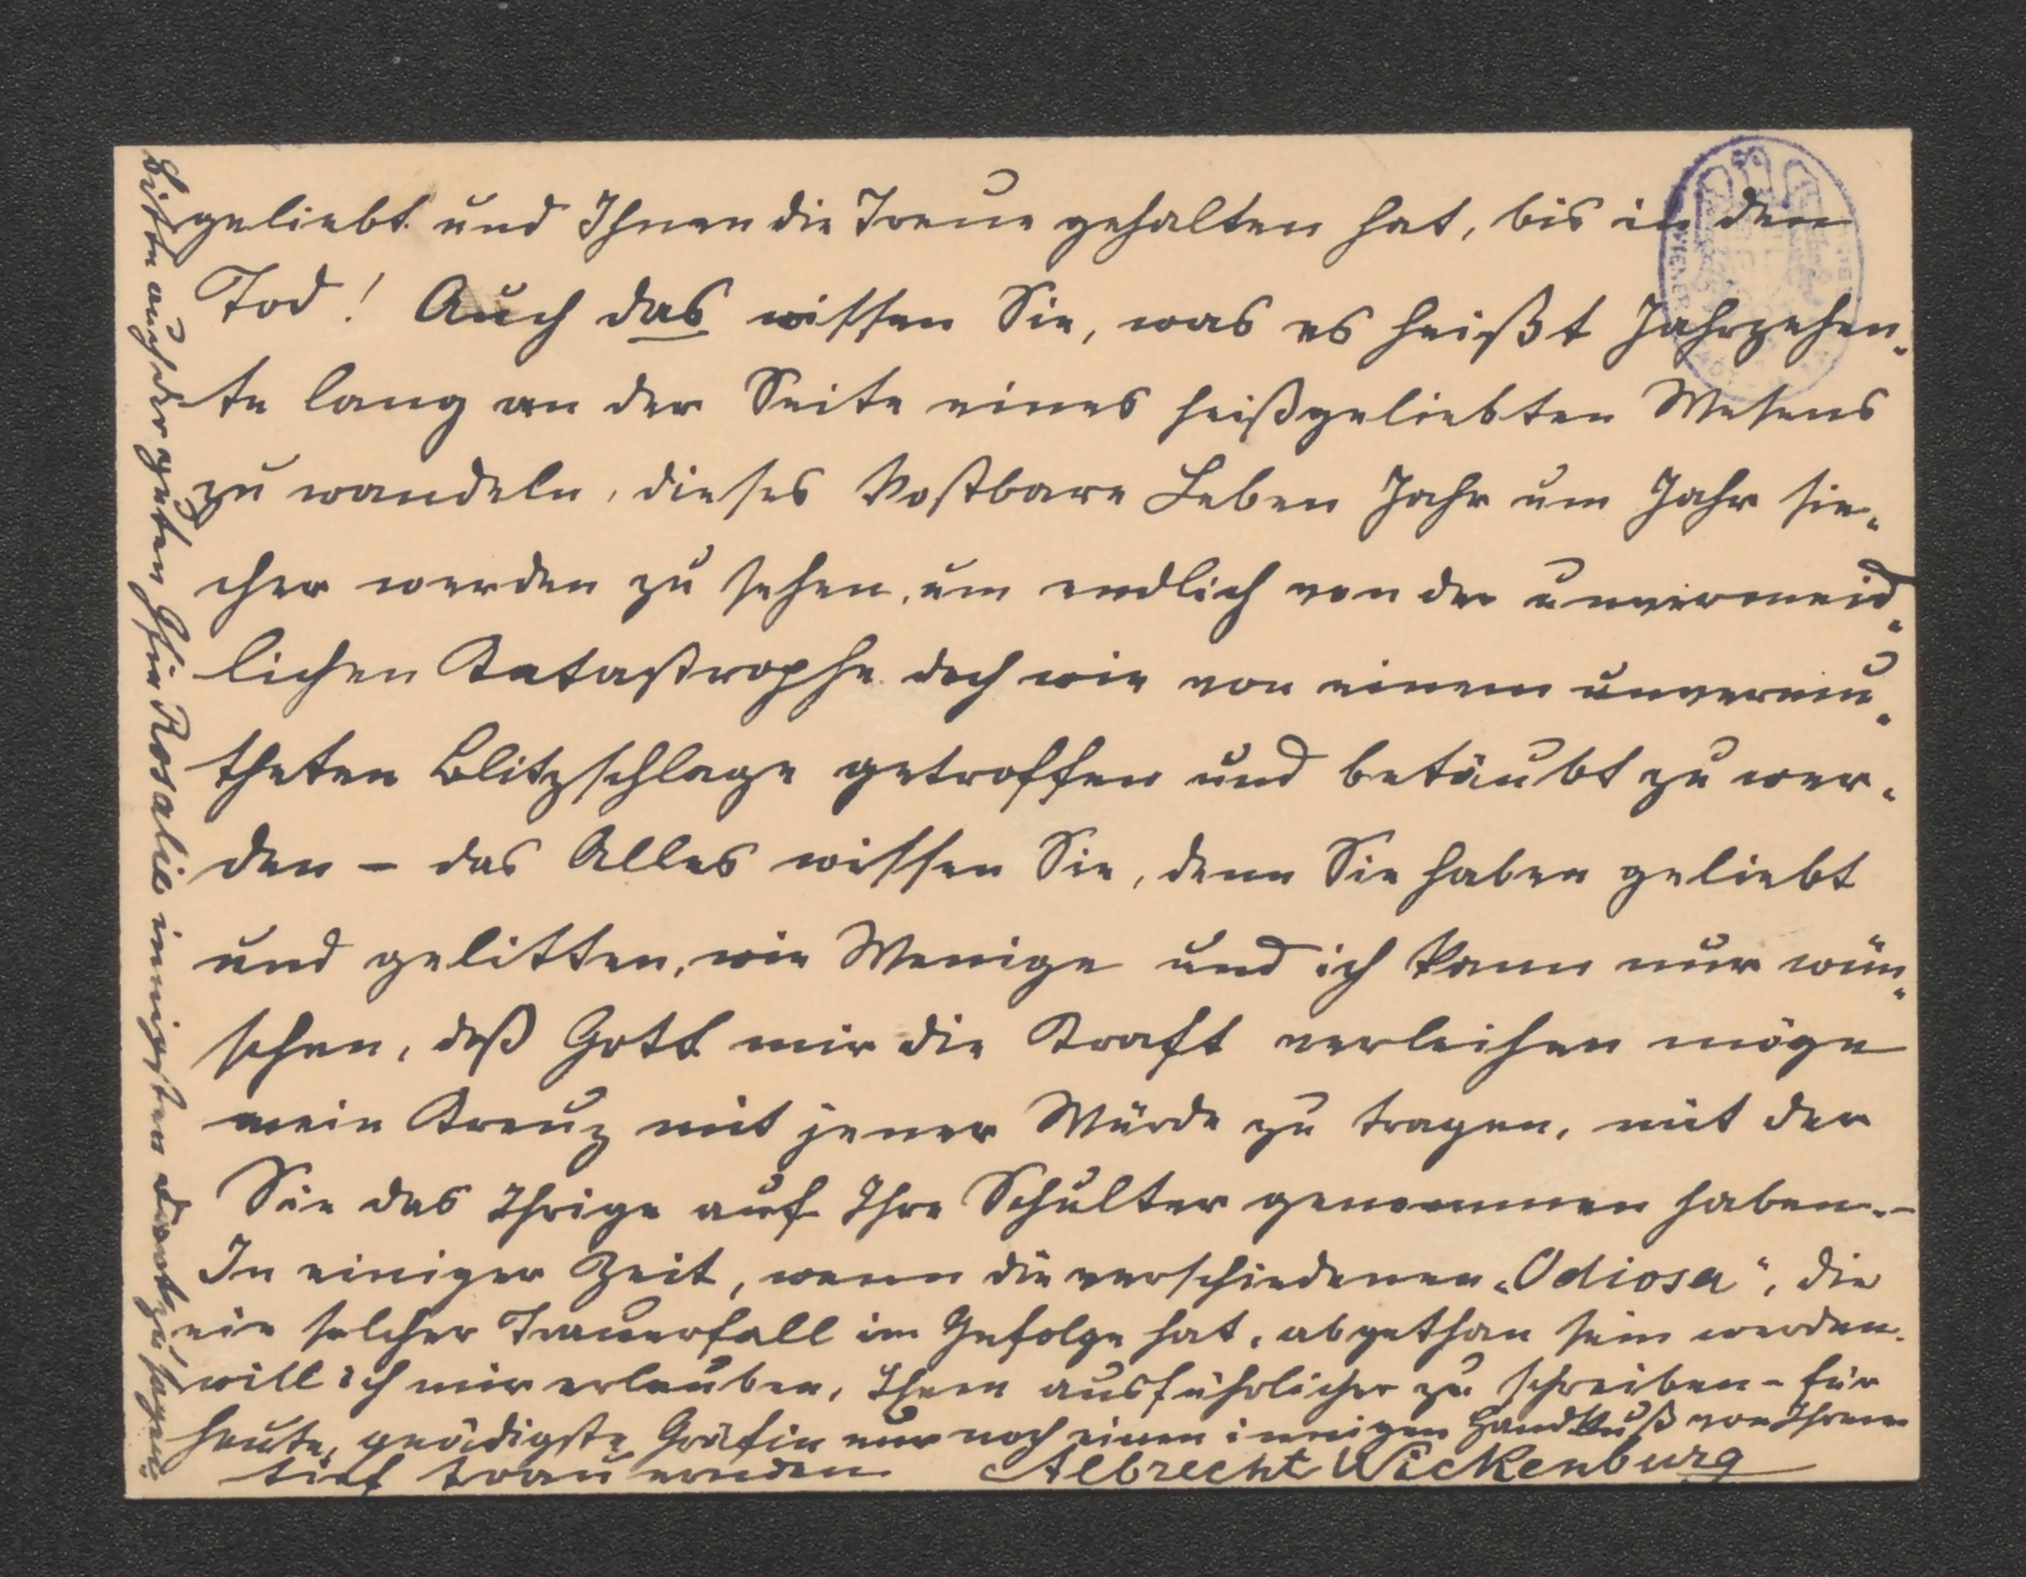 geliebt und Ihnen die Treue gehalten hat, bis in den
Tod! Auch das wissen Sie, was es heißt Jahrzehen-
te lang an der Seite eines heißgeliebten Wesens
zu wandeln, dieses kostbare Leben Jahr um Jahr sie-
cher werden zu sehen, um endlich von der unvermeid-
lichen Katastrophe doch wie von einem unvermu-
theten Blitzschlage getroffen und betäubt zu wer-
den – das Alles wissen Sie, denn Sie haben geliebt
und gelitten, wie Wenige und ich kann nur wün-
schen, daß Gott mir die Kraft verleihen möge
mein Kreuz mit jener Würde zu tragen, mit der
Sie das Ihrige auf Ihre Schulter genommen haben. –
In einiger Zeit, wenn die verschiedenen „Odiosa“, die
ein solcher Trauerfall im Gefolge hat, abgethan sein werden.
will ich mir erlauben, Ihnen ausführlicher zu schreiben – für
heute, gnädigste Gräfin nur noch einen innigen Handkuß von Ihrem
tief trauernden Albrecht Wickenburg
Bitte auch der guten Gfin Rosalie innigsten Dank zu sagen.
WIENER